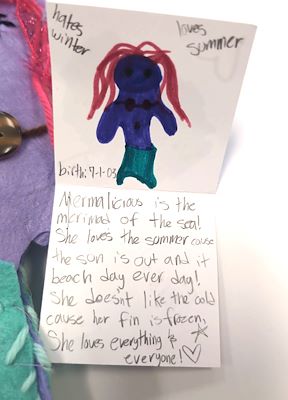 hates
winter
loves
summer
birth: 9-1-03
Mermalicious is the
merimad of the sea!
She loves the summer cause
the sun is out and it
beach day ever day!
She doesn't like the cold
cause her fin is frozen,
She loves everything &
everyone!